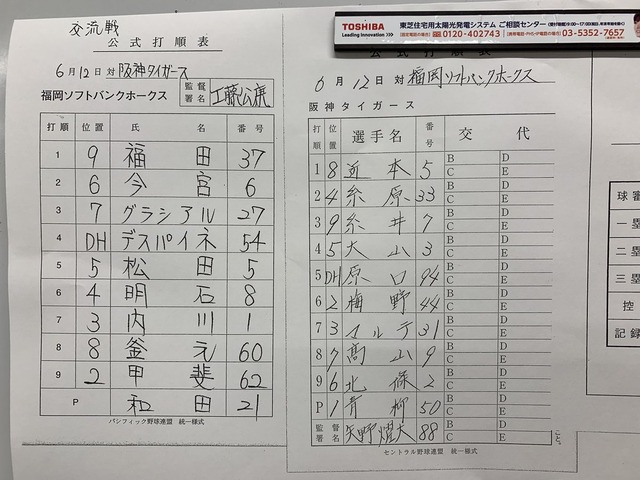 TOSHIBA
Leading Innovation >>>
東芝住宅用太陽光発電システム ご相談センター
0120-402743
03-5352-7657
交流戦
公式打順表
6月12日 対 阪神タイガース
福岡ソフトバンクホークス 監督署名 工藤公康
打順 位置 氏名 番号
1 9 福田 37
2 6 今宮 6
3 7 グラシアル 27
4 DH デスパイネ 54
5 5 松田 5
6 4 明石 8
7 3 内川 1
8 8 釜元 60
9 2 甲斐 62
P 和田 21
パシフィック野球連盟 統一様式
6月12日 対 福岡ソフトバンクホークス
阪神タイガース
打順 位置 選手名 番号 交代
1 8 近本 5 B D C E
2 4 糸原 33 B D C E
3 9 糸井 7 B D C E
4 5 大山 3 B D C E
5 DH 原口 94 B D C E
6 2 梅野 44 B D C E
7 3 マルテ 31 B D C E
8 7 髙山 9 B D C E
9 6 北條 2 B D C E
P 1 青柳 50 B D C E
監督署名 矢野燿大 88 B D C E
こと。
セントラル野球連盟 統一様式
球審
一塁
二塁
三塁
控
記録